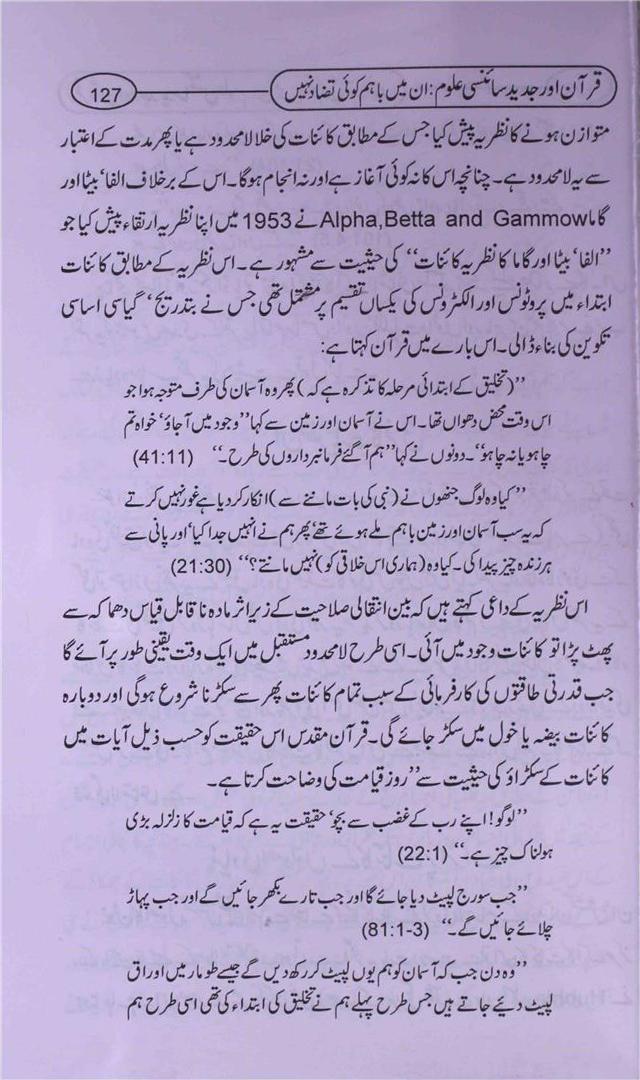 قرآن اور جدید سائنسی علوم: ان میں باہم کوئی تضاد نہیں
127
متوازن ہونے کا نظریہ پیش کیا جس کے مطابق کائنات کی خلا لامحدود ہے یا پھر مدت کے اعتبار
سے یہ لامحدود ہے۔ چنانچہ اس کا نہ کوئی آغاز ہے اور نہ انجام ہوگا۔ اس کے برخلاف الفا، بیٹا اور
گاما Alpha,Betta and Gammow نے 1953 میں اپنا نظریہ ارتقاء پیش کیا جو
’’الفا، بیٹا اور گاما کا نظریہ کائنات‘‘ کی حیثیت سے مشہور ہے۔ اس نظریہ کے مطابق کائنات
ابتداء میں پروٹونس اور الکٹرونس کی یکساں تقسیم پر مشتمل تھی جس نے بتدریج، گیاسی اساسی
تکوین کی بناء ڈالی۔ اس بارے میں قرآن کہتا ہے:
’’(تخلیق کے ابتدائی مرحلہ کا تذکرہ ہے کہ) پھر وہ آسمان کی طرف متوجہ ہوا جو
اس وقت محض دھواں تھا۔ اس نے آسمان اور زمین سے کہا ’’وجود میں آجاؤ، خواہ تم
چاہو یا نہ چاہو‘‘۔ دونوں نے کہا ’’ہم آگئے فرمانبرداروں کی طرح۔‘‘ (41:11)
’’کیا وہ لوگ جنھوں نے (نبی کی بات ماننے سے) انکار کر دیا ہے غور نہیں کرتے
کہ یہ سب آسمان اور زمین باہم ملے ہوئے تھے، پھر ہم نے انہیں جدا کیا، اور پانی سے
ہر زندہ چیز پیدا کی۔ کیا وہ (ہماری اس خلاقی کو) نہیں مانتے؟‘‘ (21:30)
اس نظریہ کے داعی کہتے ہیں کہ بین انتقالی صلاحیت کے زیر اثر مادہ ناقابل قیاس دھماکہ سے
پھٹ پڑا تو کائنات وجود میں آئی۔ اسی طرح لامحدود مستقبل میں ایک وقت یقینی طور پر آئے گا
جب قدرتی طاقتوں کی کارفرمائی کے سبب تمام کائنات پھر سے سکڑنا شروع ہوگی اور دوبارہ
کائنات بیضہ یا خول میں سکڑ جائے گی۔ قرآن مقدس اس حقیقت کو حسب ذیل آیات میں
کائنات کے سکڑاؤ کی حیثیت سے ’’روز قیامت کی وضاحت کرتا ہے۔
’’لوگو! اپنے رب کے غضب سے بچو، حقیقت یہ ہے کہ قیامت کا زلزلہ بڑی
ہولناک چیز ہے۔‘‘ (22:1)
’’جب سورج لپیٹ دیا جائے گا اور جب تارے بکھر جائیں گے اور جب پہاڑ
چلائے جائیں گے۔‘‘ (81:1-3)
’’وہ دن جب کہ آسمان کو ہم یوں لپیٹ کر رکھ دیں گے جیسے طومار میں اوراق
لپیٹ دیئے جاتے ہیں جس طرح پہلے ہم نے تخلیق کی ابتداء کی تھی اسی طرح ہم